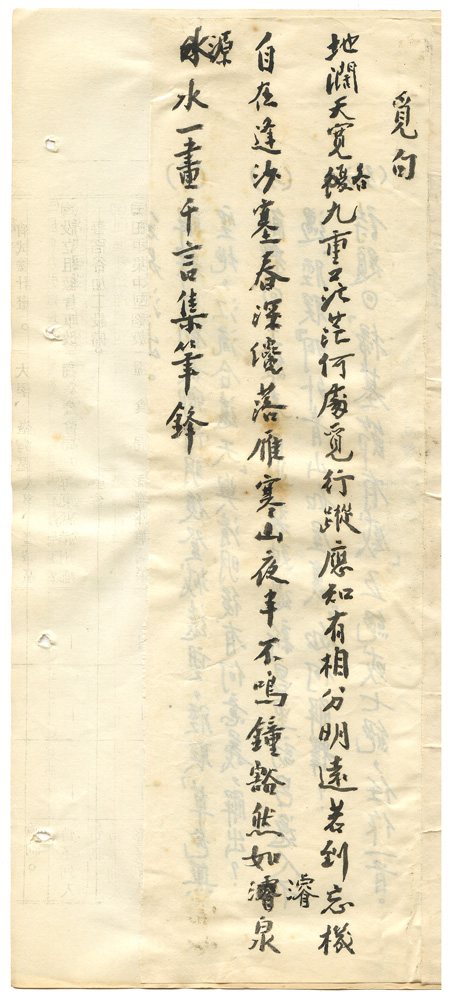 覓句
地濶天寬杳九重茫茫何處覓行蹤應知有相分明遠若到忘機
自在逢沙塞春深落雁寒山夜半不鳴鐘豁然如濬泉
源水一畫千言集筆鋒